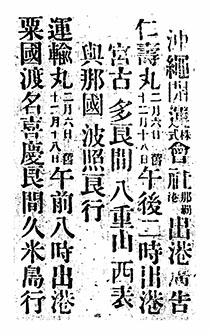 沖繩開運株式會社那覇港出港廣告
仁壽丸二月六日舊十二月十八日午後二時出港
宮古 多良間 八重山 西表
與那國 波照間行
運輸丸二月六日舊十二月十八日午前八時出港
粟國渡名喜慶良間久米島行